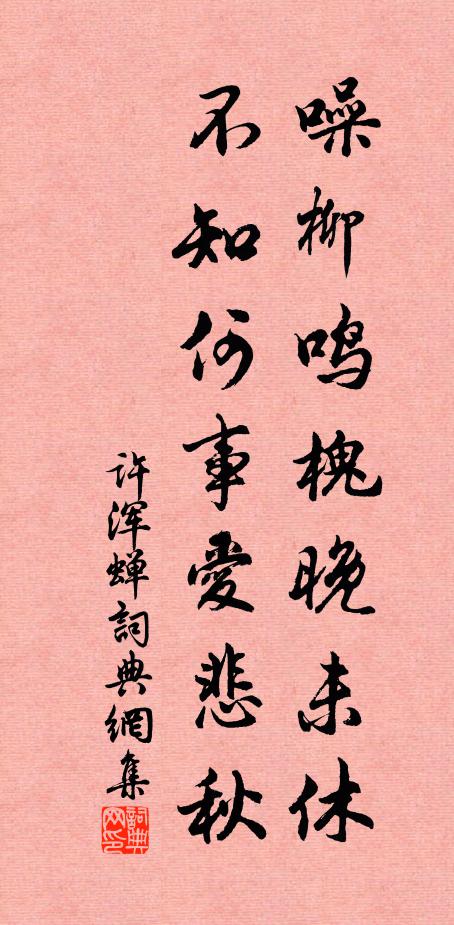 噪柳鸣槐晚未休
不知何事愛悲秋
许浑蝉詞典網集
詞典网印